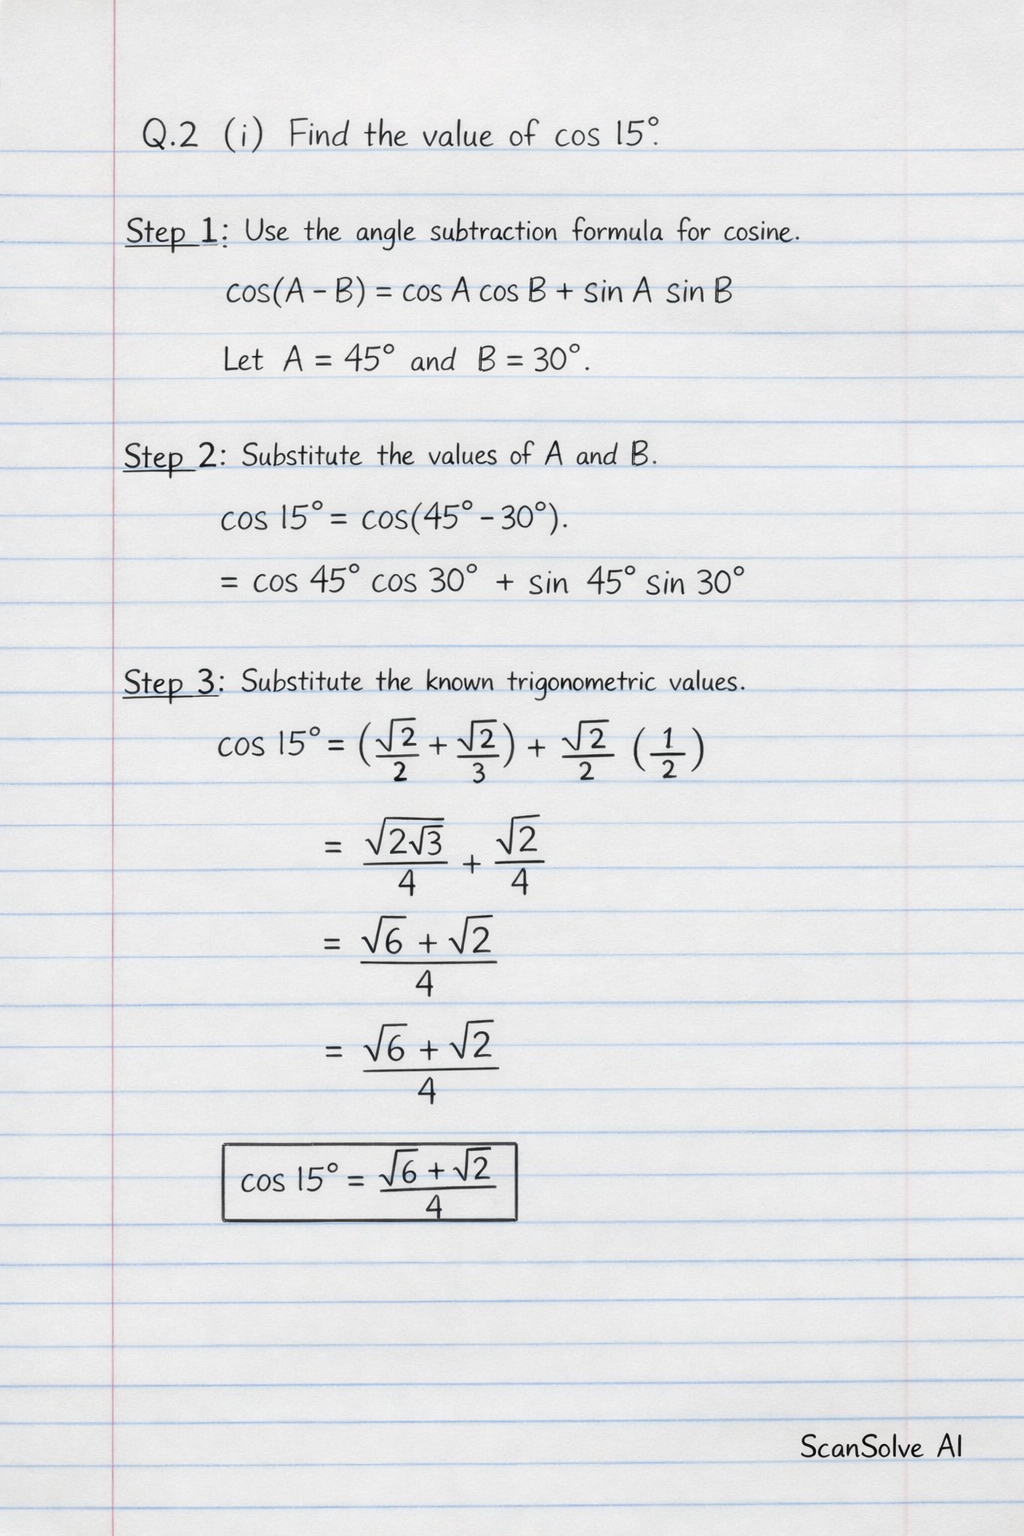 Q.2 (i) Find the value of cos 15°.
Step 1: Use the angle subtraction formula for cosine.
cos(A - B) = cos A cos B + sin A sin B
Let A = 45° and B = 30°.
Step 2: Substitute the values of A and B.
cos 15° = cos(45° - 30°).
= cos 45° cos 30° + sin 45° sin 30°
Step 3: Substitute the known trigonometric values.
cos 15° = (√2/2 + √2/3) + √2/2 (1/2)
= √(2√3)/4 + √2/4
= (√6 + √2)/4
= (√6 + √2)/4
cos 15° = (√6 + √2)/4
ScanSolve AI